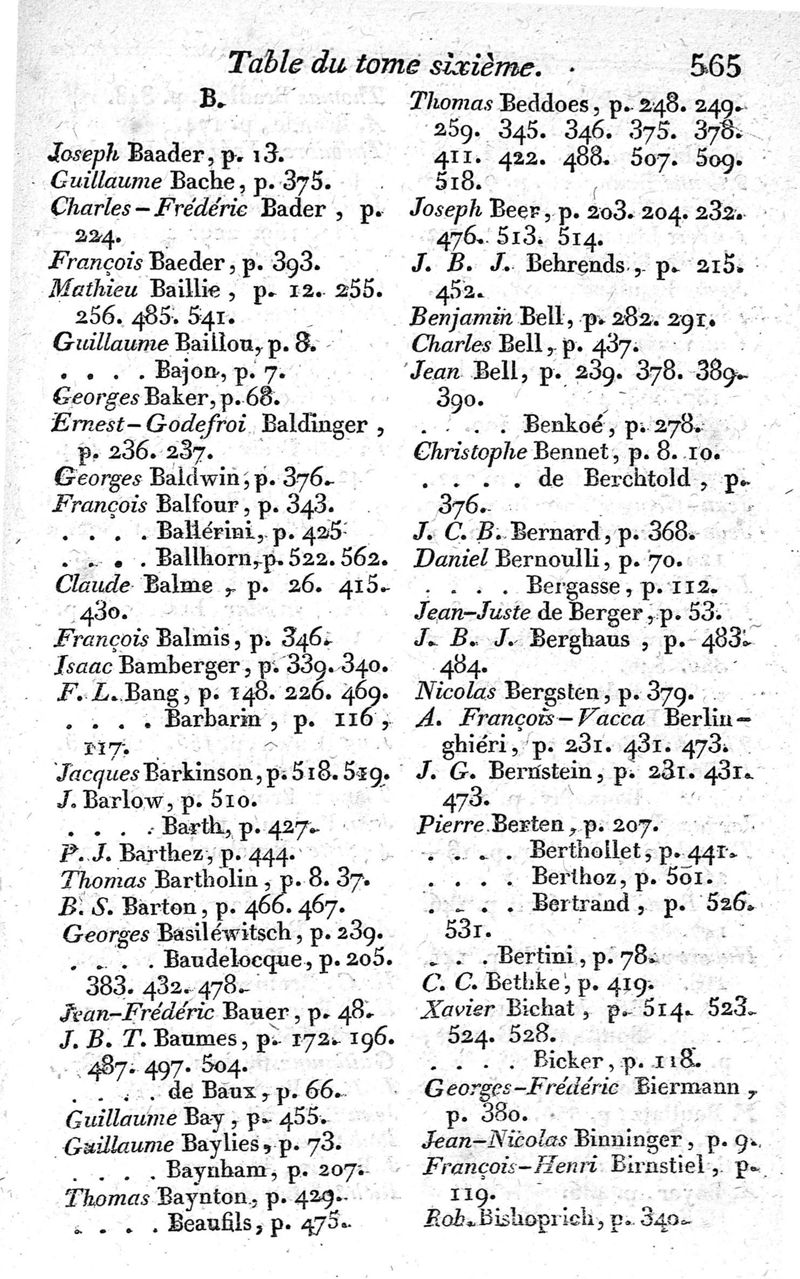 Table du tome sixième. 565
B.
Joseph Baader, p. 13.
Guillaume Bache, p. 375.
Charles-Frédéric Bader , p.
224.
François Baeder, p. 393.
Mathieu Baillie , p. 12. 255.
256. 485. 541.
Guillaume Baillou, p. 8.
. . . . Bajon, p. 7.
Georges Baker, p. 68.
Ernest-Godefroi Baldinger ,
p. 236. 237.
Georges Baldwin, p. 376.
François Balfour, p. 343.
. . . . Ballérini, p. 425.
. . . . Ballhorn, p. 522. 562.
Claude Balme , p. 26. 415.
430.
François Balmis, p. 346.
Isaac Bamberger, p. 339. 340.
F. L. Bang, p. 148. 226. 469.
. . . . Barbarin , p. 116 ,
117.
Jacques Barkinson, p. 518. 519.
J. Barlow, p. 510.
. . . . Barth, p. 427.
P. J. Barthez, p. 444.
Thomas Bartholin , p. 8. 37.
B. S. Barton, p. 466. 467.
Georges Basiléwitsch, p. 239.
. . . . Baudelocque, p. 205.
383. 432. 478.
Jean-Frédéric Bauer, p. 48.
J. B. T. Baumes, p. 172. 196.
487. 497. 504.
. . . . de Baux, p. 66.
Guillaume Bay , p. 455.
Guillaume Baylies, p. 73.
. . . . Baynham, p. 207.
Thomas Baynton, p. 429.
. . . . Beaufils, p. 475.
Thomas Beddoes, p. 248. 249.
259. 345. 346. 375. 378.
411. 422. 488. 507. 509.
518.
Joseph Beer, p. 203. 204. 232.
476. 513. 514.
J. B. J. Behrends , p. 215.
452.
Benjamin Bell, p. 282. 291.
Charles Bell, p. 437.
Jean Bell, p. 239. 378. 389.
390.
. . . . Benkoé, p. 278.
Christophe Bennet, p. 8. 10.
. . . . de Berchtold , p.
376.
J. C. B. Bernard, p. 368.
Daniel Bernoulli, p. 70.
. . . . Bergasse, p. 112.
Jean-Juste de Berger, p. 53.
J. B. J. Berghaus , p. 483.
484.
Nicolas Bergsten, p. 379.
A. François-Vacca Berlin-
ghiéri, p. 231. 431. 473.
J. G. Bernstein, p. 231. 431.
473.
Pierre Berten, p. 207.
. . . . Berthollet, p. 441.
. . . . Berthoz, p. 501.
. . . . Bertrand , p. 526.
531.
. . . Bertini, p. 78.
C. C. Bethke, p. 419.
Xavier Bichat , p. 514. 523.
524. 528.
. . . . Bicker, p. 118.
Georges-Frédéric Biermann ,
p. 380.
Jean-Nicolas Binninger, p. 9.
François-Henri Birnstiel, p.
119.
Rob. Bishoprich, p. 340.